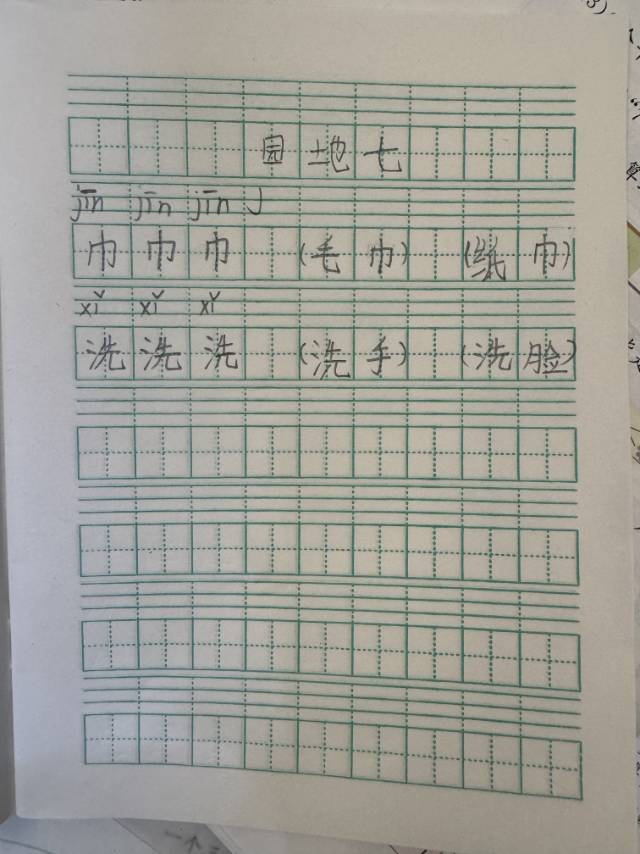 园地七
jīn jīn jīn
巾 巾 巾 (毛巾) (纸巾)
xǐ xǐ xǐ
洗 洗 洗 (洗手) (洗脸)